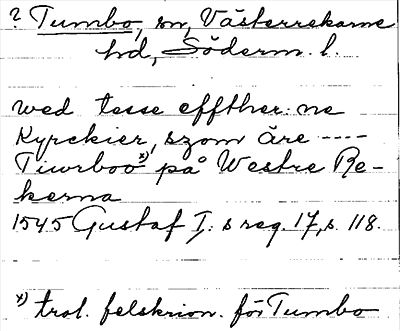 ? Tumbo, sn, Västerrekarne
hd, Söderm. l.
wed tesse effther: ne
Kyrckier, szom äre ----
Tiwrboo x) på Westre Re-
kerna
1545 Gustaf I: s reg. 17, s. 118.
x) trol. felskrivn. för Tumbo